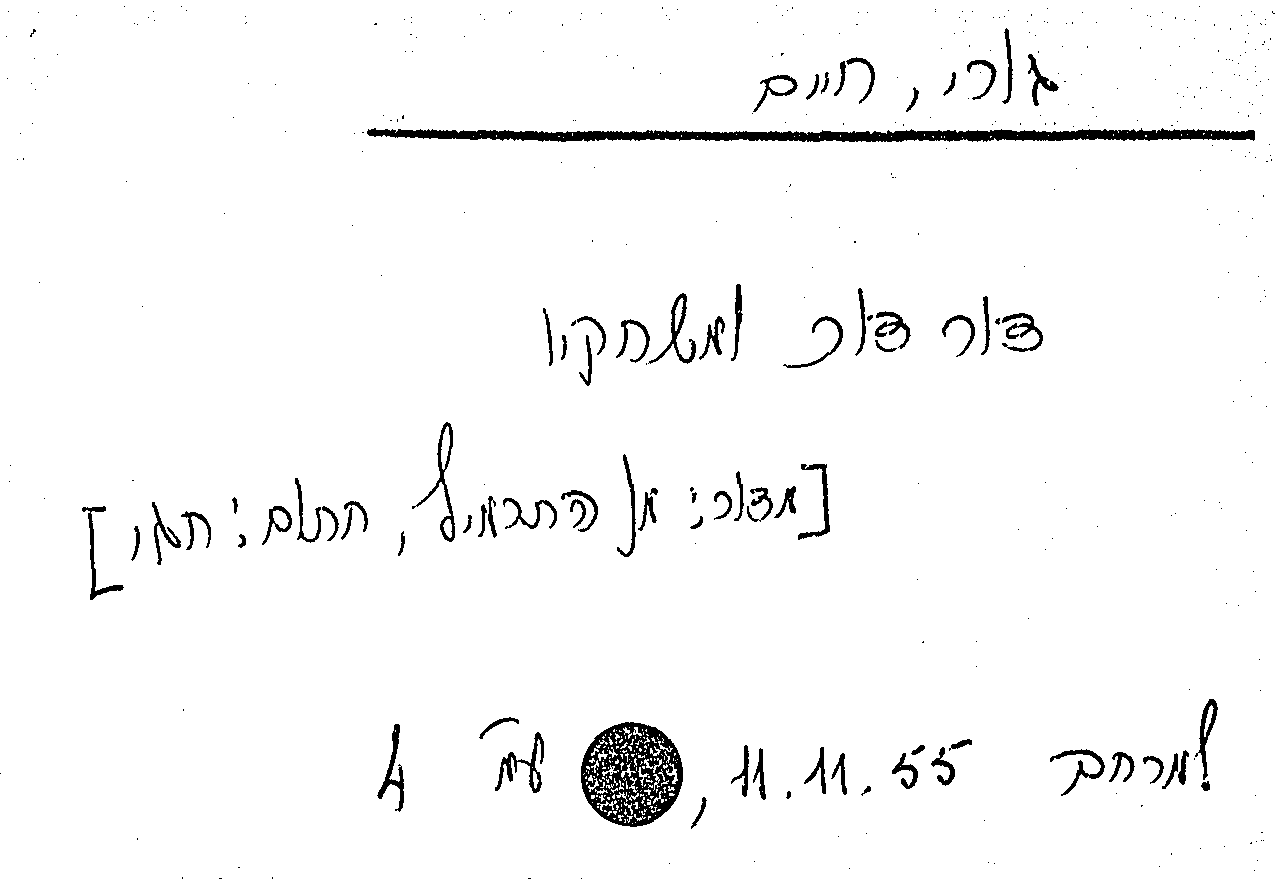 גורי, חיים
דור דור ומשחקיו
[מדור: מן התרמיל, חתום: חגי]
למרחב 11.11.55, עמ' 4